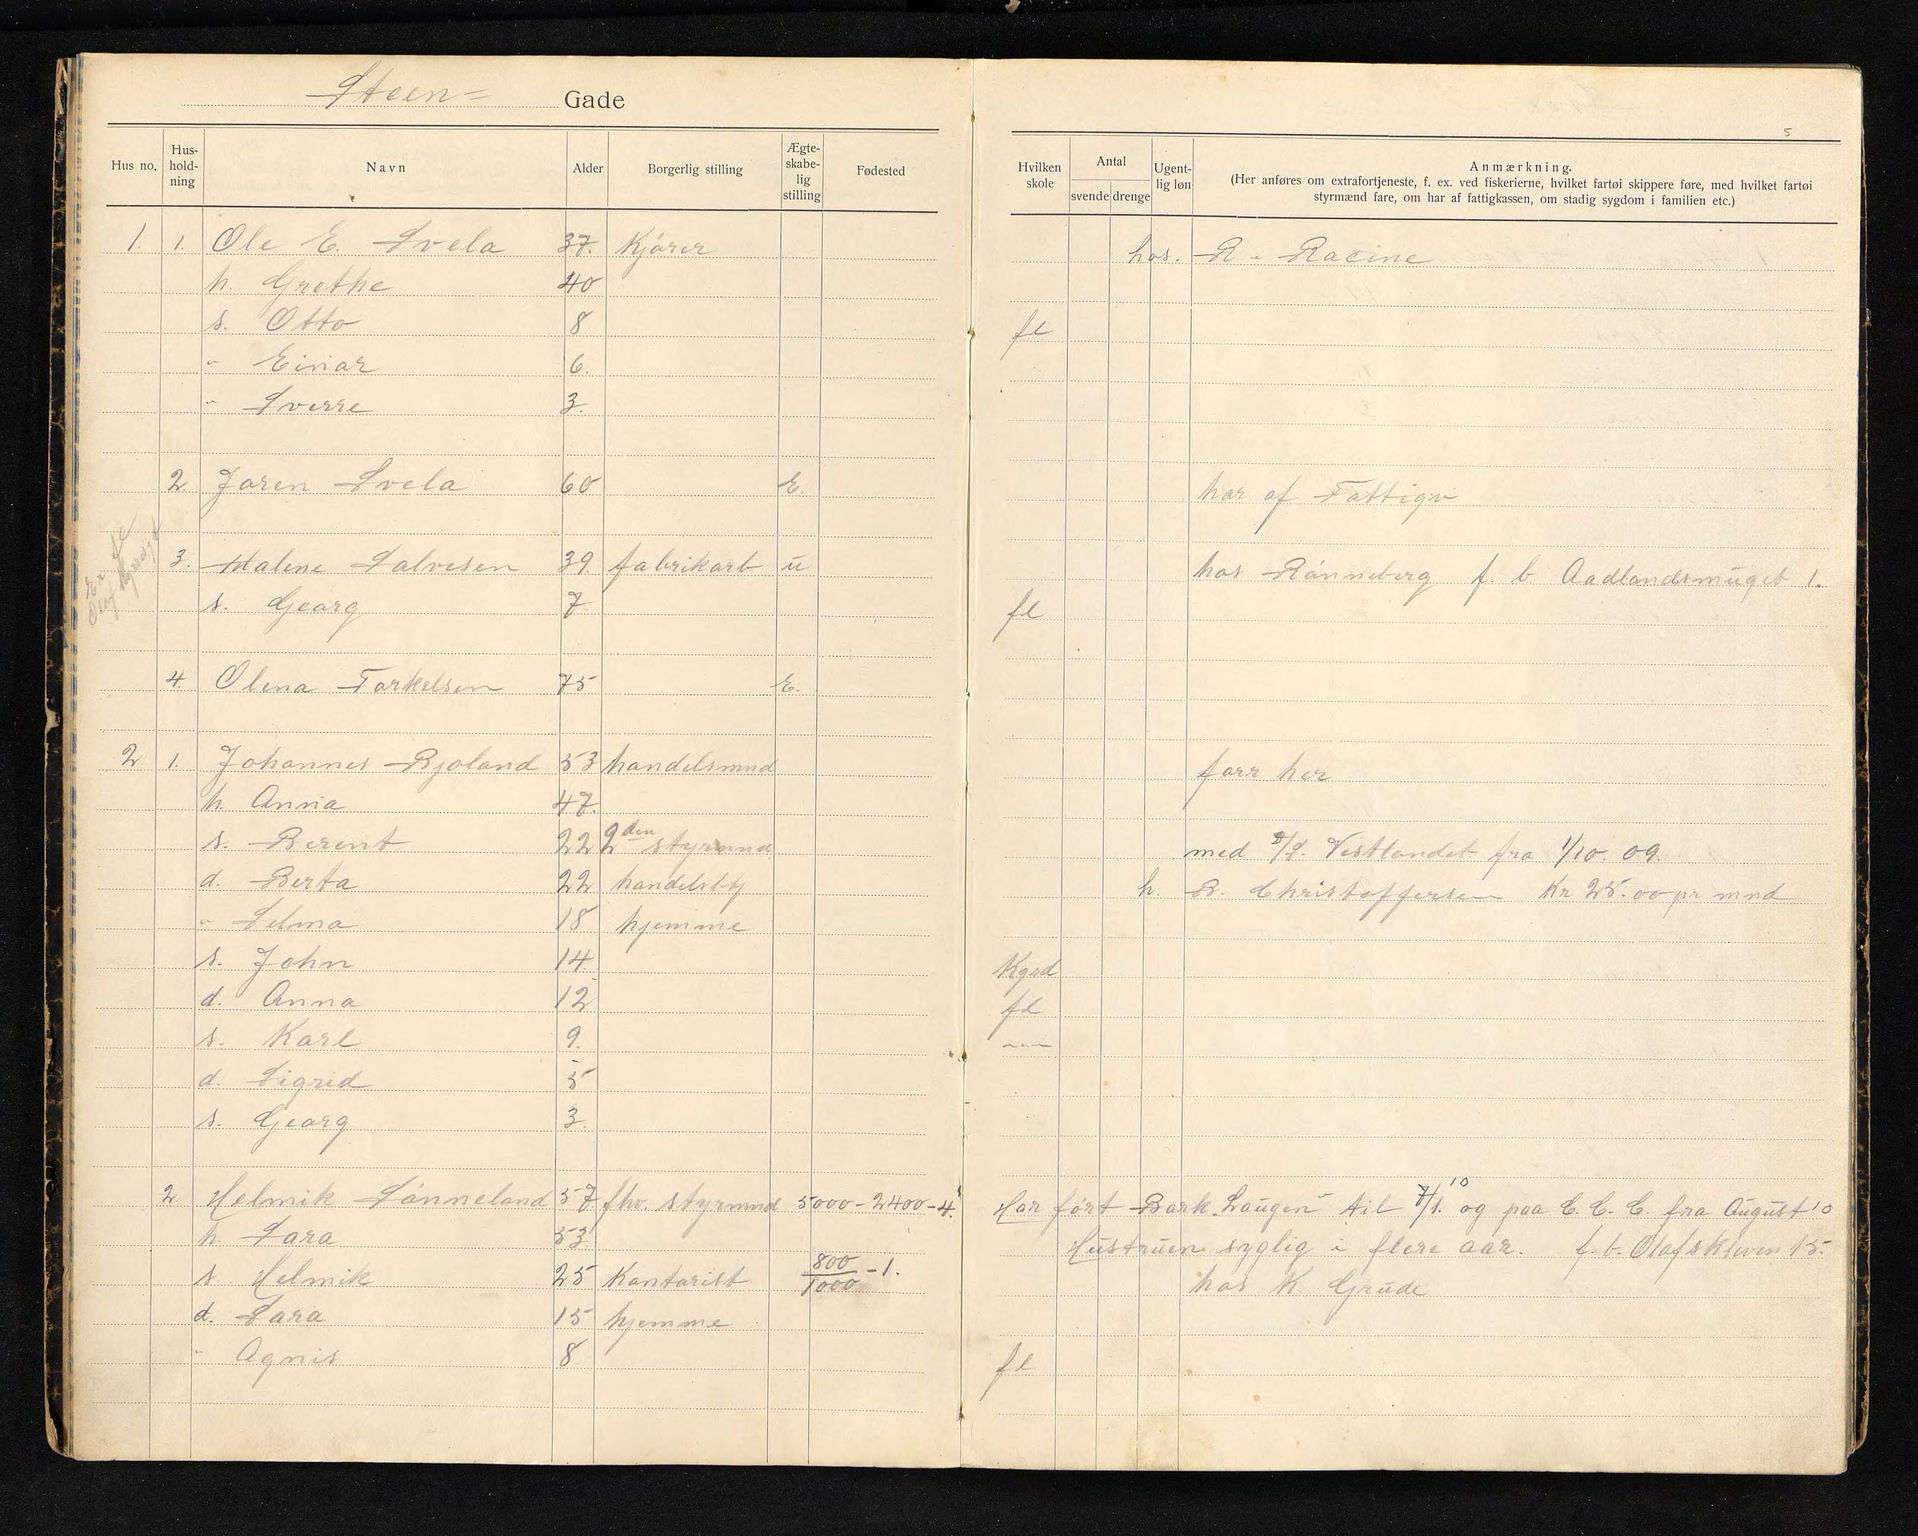 Steen= Gade
5
Hus no. Hus-hold-ning Navn Alder Borgerlig stilling Ægte-skabe-lig stilling Fødested Hvilken skole Antal svende drenge Ugent-lig løn Anmærkning.
(Her anføres om extrafortjeneste, f. ex. ved fiskerierne, hvilket fartøi skippere føre, med hvilket fartøi
styrmænd fare, om har af fattigkassen, om stadig sygdom i familien etc.)
1. 1. Ole E. Svela 37. Kjører hos. R. Racine
h. Grethe 40
s. Otto 8 fl
" Einar 6.
" Sverre 3.
2 Joren Svela 60 E. har af Fattigv
3. Malene Salvesen 39 fabrikarb u hos Rønneberg f. b. Aadlandsmuget 1.
s. Georg 7 fl
4. Olena Torkelsen 75 E.
2 1. Johannes Bjoland 53 handelsmnd forr her
h. Anna 47.
s. Berent 22 2den styrmnd med D/S. Vestlandet fra 1/10. 09.
d. Berta 22 handelsbtj h. B. Christoffersen Kr 25.00 pr mnd
" Selma 18 hjemme
s. John 14. Kgrd
d. Anna 12 fl
s. Karl 9. "
d. Sigrid 5
s. Georg 3.
2 Helmik Sønneland 57 fhv. styrmnd 5000-2400-4. Har ført Bark "Laugen" til 7/1.10 og paa C. C. C. fra August 10
h. Sara 53 Hustruen syglig i flere aar. f. b. Olafskleven 15.
s. Helmik 25 Kontorist 800/1000-1. hos K. Grude
d. Sara 15 hjemme
" Agnis 8 fl